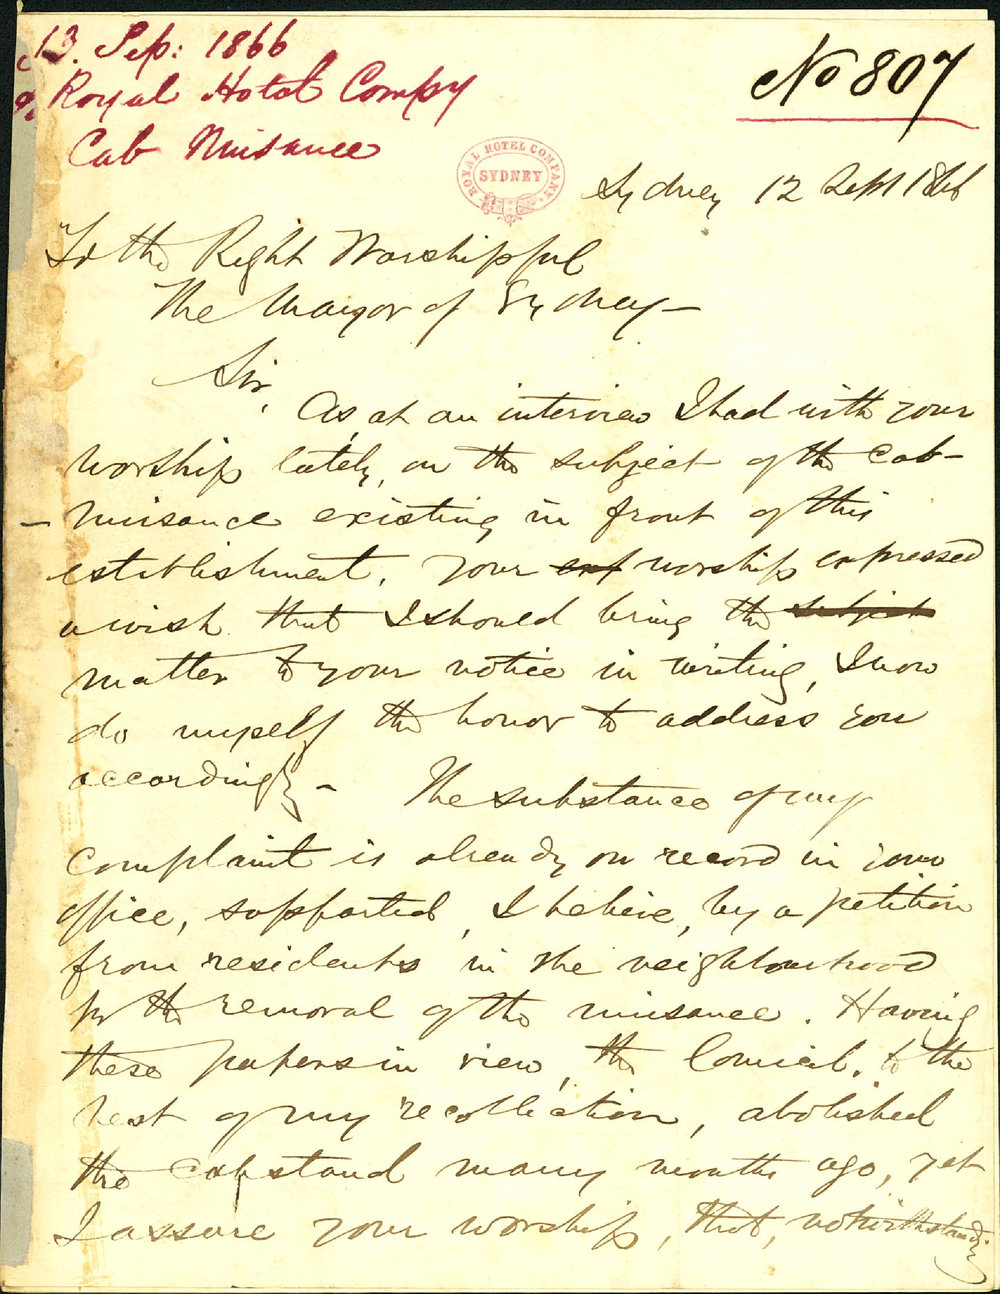 13. Sep: 1866
Royal Hotel Compy
Cab Nuisance
No 807
ROYAL HOTEL COMPANY
SYDNEY
Sydney 12 Sept 1866
To the Right Worshipful
The Mayor of Sydney—
Sir,
As, at an interview I had with your
worship lately, on the subject of the Cab-
-nuisance existing in front of this
establishment, your worship expressed
a wish that I should bring the subject
matter to your notice in writing, I now
do myself the honor to address you
accordingly— The substance of my
complaint is already on record in your
office, supported, I believe, by a petition
from residents in the neighbourhood
for the removal of the nuisance. Having
these papers in view, the Council, to the
best of my recollection, abolished
the cabstand many months ago, yet
I assure your worship, that, notwithstanding